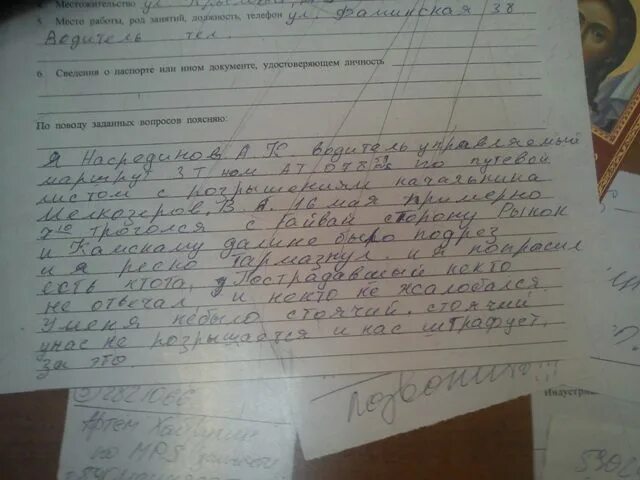 Местожительство ул
5. Место работы, род занятий, должность, телефон ул. Фаминская 38
Водитель тел.
6. Сведения о паспорте или ином документе, удостоверяющем личность
По поводу заданных вопросов поясняю:
Я Насрединов А К водитель управляемый
маршрут 3Т ном АТ 078 59 по путевой
листом с розрышениям начальника
Мелкозеров В А. 16 мая примерно
троголся с Гайвай сторону Рынок
и Камскаму далине было подрез
и я реско тармазнул. и я попрасил
есть ктота, Пострадавший некто
не отвечал и некто не жсалобался.
Уменя небыло стоячий. стоячий
унас не розрышается и нас штрафует.
за это.
2821066
Артем
по MPS
позвонить!!!
Индустри
590